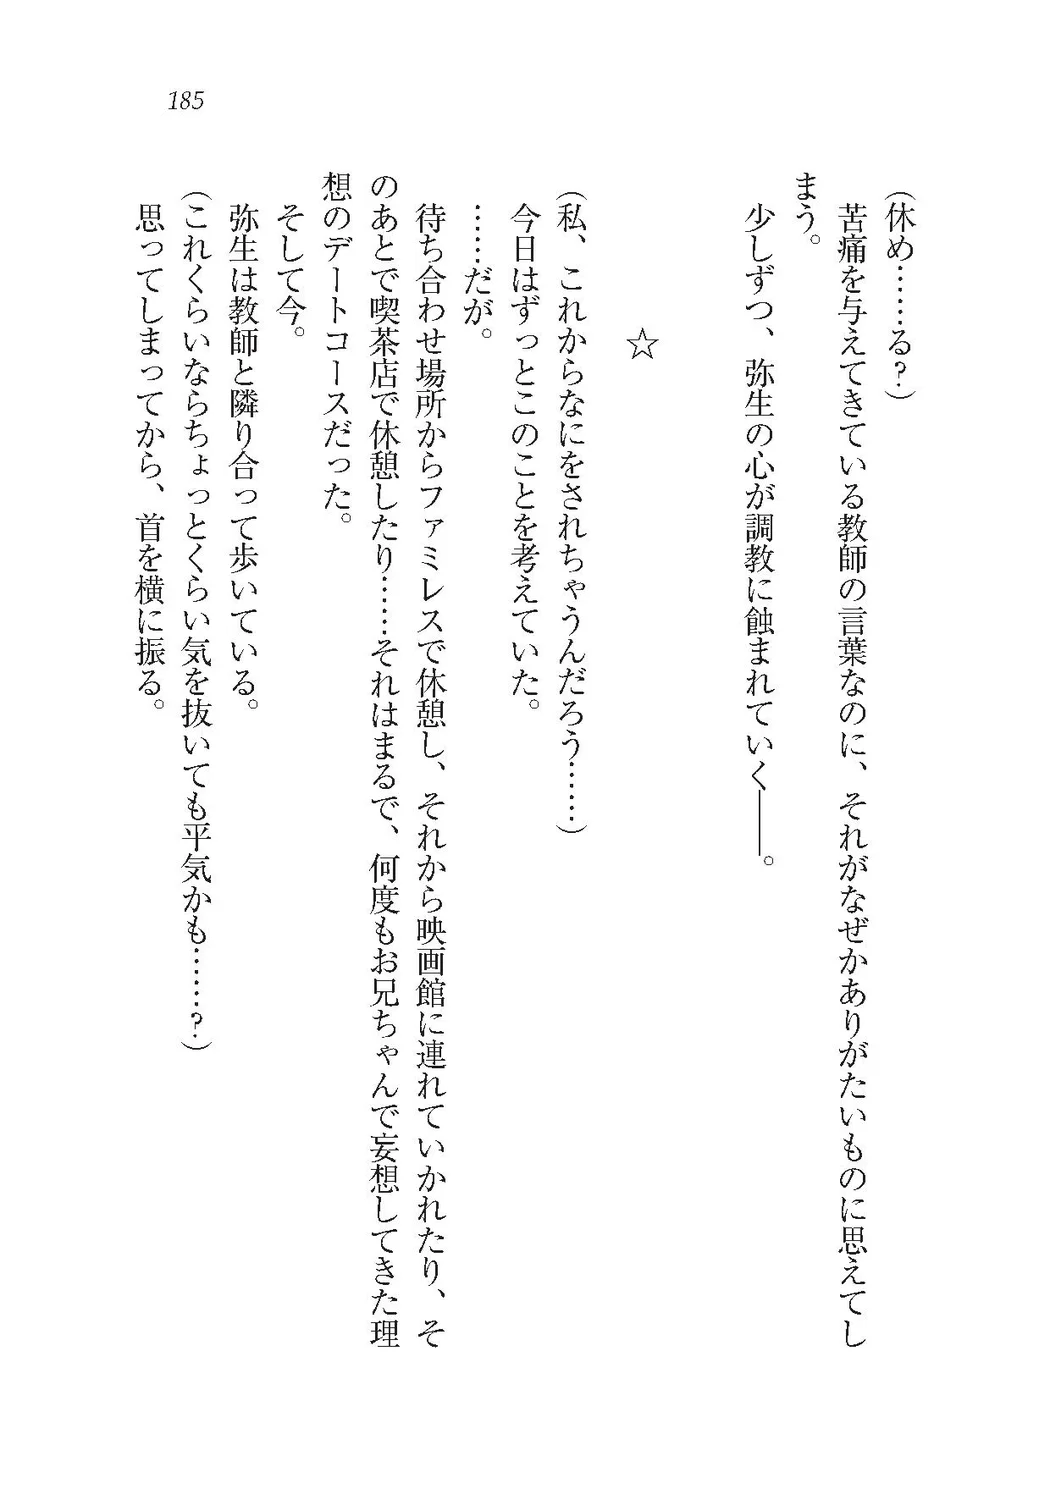 185
(休め……る?)
苦痛を与えてきている教師の言葉なのに、それがなぜかありがたいものに思えてし
まう。
少しずつ、弥生の心が調教に蝕まれていく――。
☆
(私、これからなにをされちゃうんだろう……)
今日はずっとこのことを考えていた。
……だが。
待ち合わせ場所からファミレスで休憩し、それから映画館に連れていかれたり、そ
のあとで喫茶店で休憩したり……それはまるで、何度もお兄ちゃんで妄想してきた理
想のデートコースだった。
そして今。
弥生は教師と隣り合って歩いている。
(これくらいならちょっとくらい気を抜いても平気かも……?)
思ってしまってから、首を横に振る。